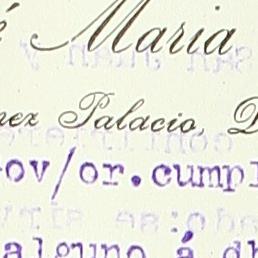 é Maria
nez Palacio, D
ov/or.cumpl
alguno á dh